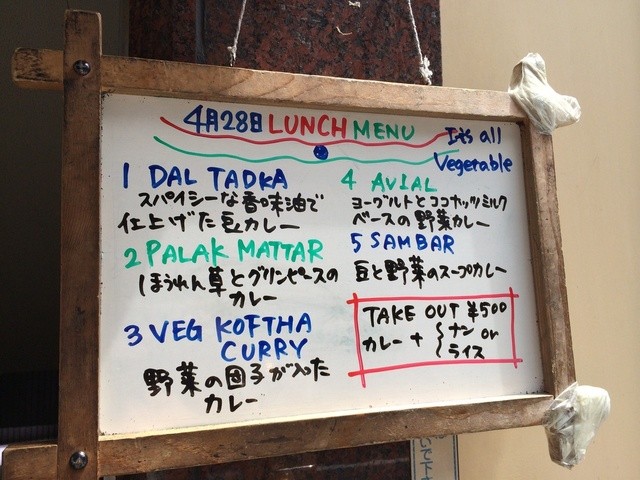 4月28日 LUNCH MENU
It's all
Vegetable
1 DAL TADKA
スパイシーな香味油で
仕上げた豆カレー
2 PALAK MATTAR
ほうれん草とグリンピースの
カレー
3 VEG KOFTHA
CURRY
野菜の団子が入った
カレー
4 AVIAL
ヨーグルトとココナッツミルク
ベースの野菜カレー
5 SAMBAR
豆と野菜のスープカレー
TAKE OUT ¥500
カレー + { ナン or
ライス